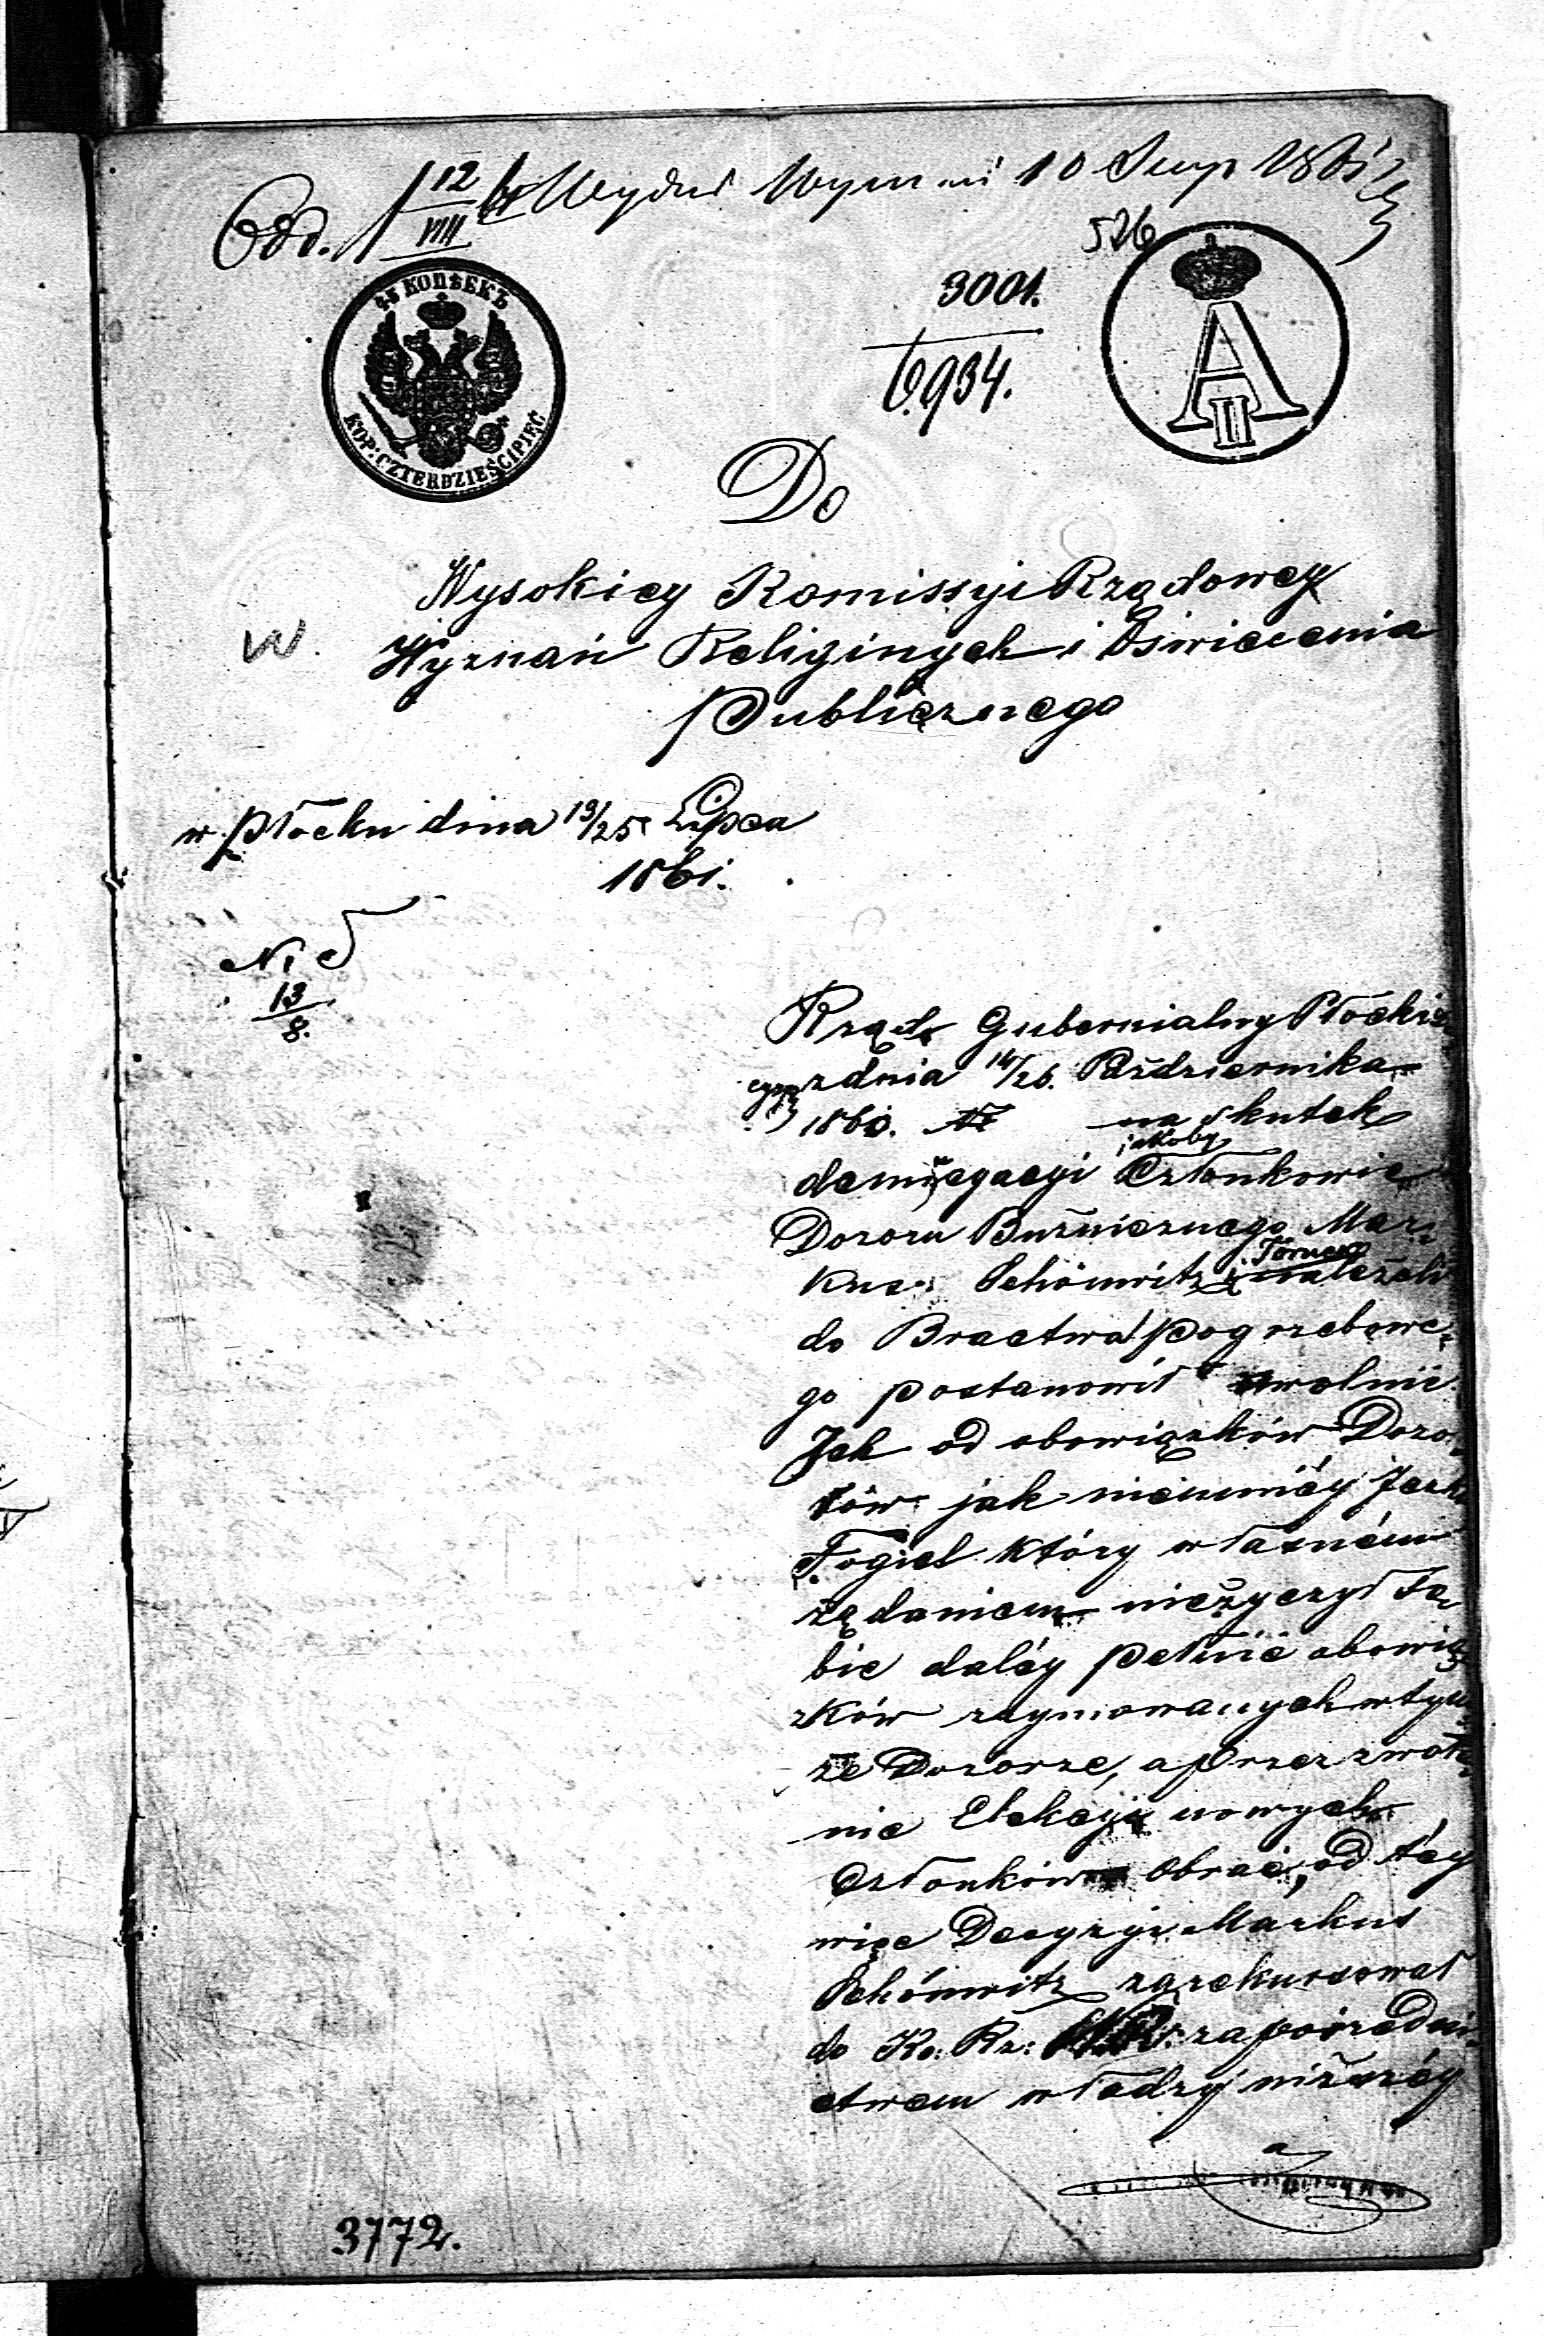 Odd. 12/VIII Wydział Wyznań 10 Sierp 1861
526
45 КОПѢЕКЪ
KOP: CZTERDZIEŚCI PIĘĆ
3001.
6.934.
A II
Do
Wysokiey Komissyi Rządowey
W. Wyznań Religinych i Oświecenia
Publicznego
w Płocku dnia 13/25 Lipca
1861.
N 5
13/8.
Rząd Gubernialny Płocki
z dnia 14/26. Października
1860. N na skutek
denuncyacyi jakoby Członkowie
Dozoru Bużnicznego Mar=
kus Schönwitz i należeli
do Bractwa Pogrzebowe=
go postanowił uwolnić
Ich od obowiązków Dozo=
rów jak nieumiéy
Fogiel który własném
żądaniem nieżyczył So=
bie daléy pełnić obowią
zków zaymowanych w tym
że Dozorze, a przez zwoła=
nie Elekcyi nowych
Członków obrać, od téy
więc Decyzyi Markus
Schönwitz zarekursował
do Ko: Rz: za pośredni=
ctwem władzy niższéy
a
3772.